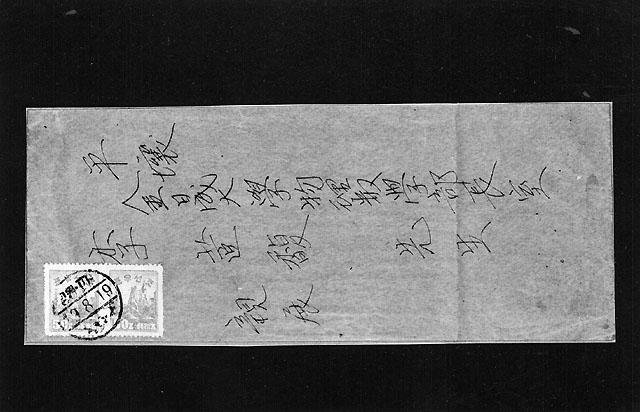 平壤
金日成大學物理數學部長室
李 先生
親展
8.19